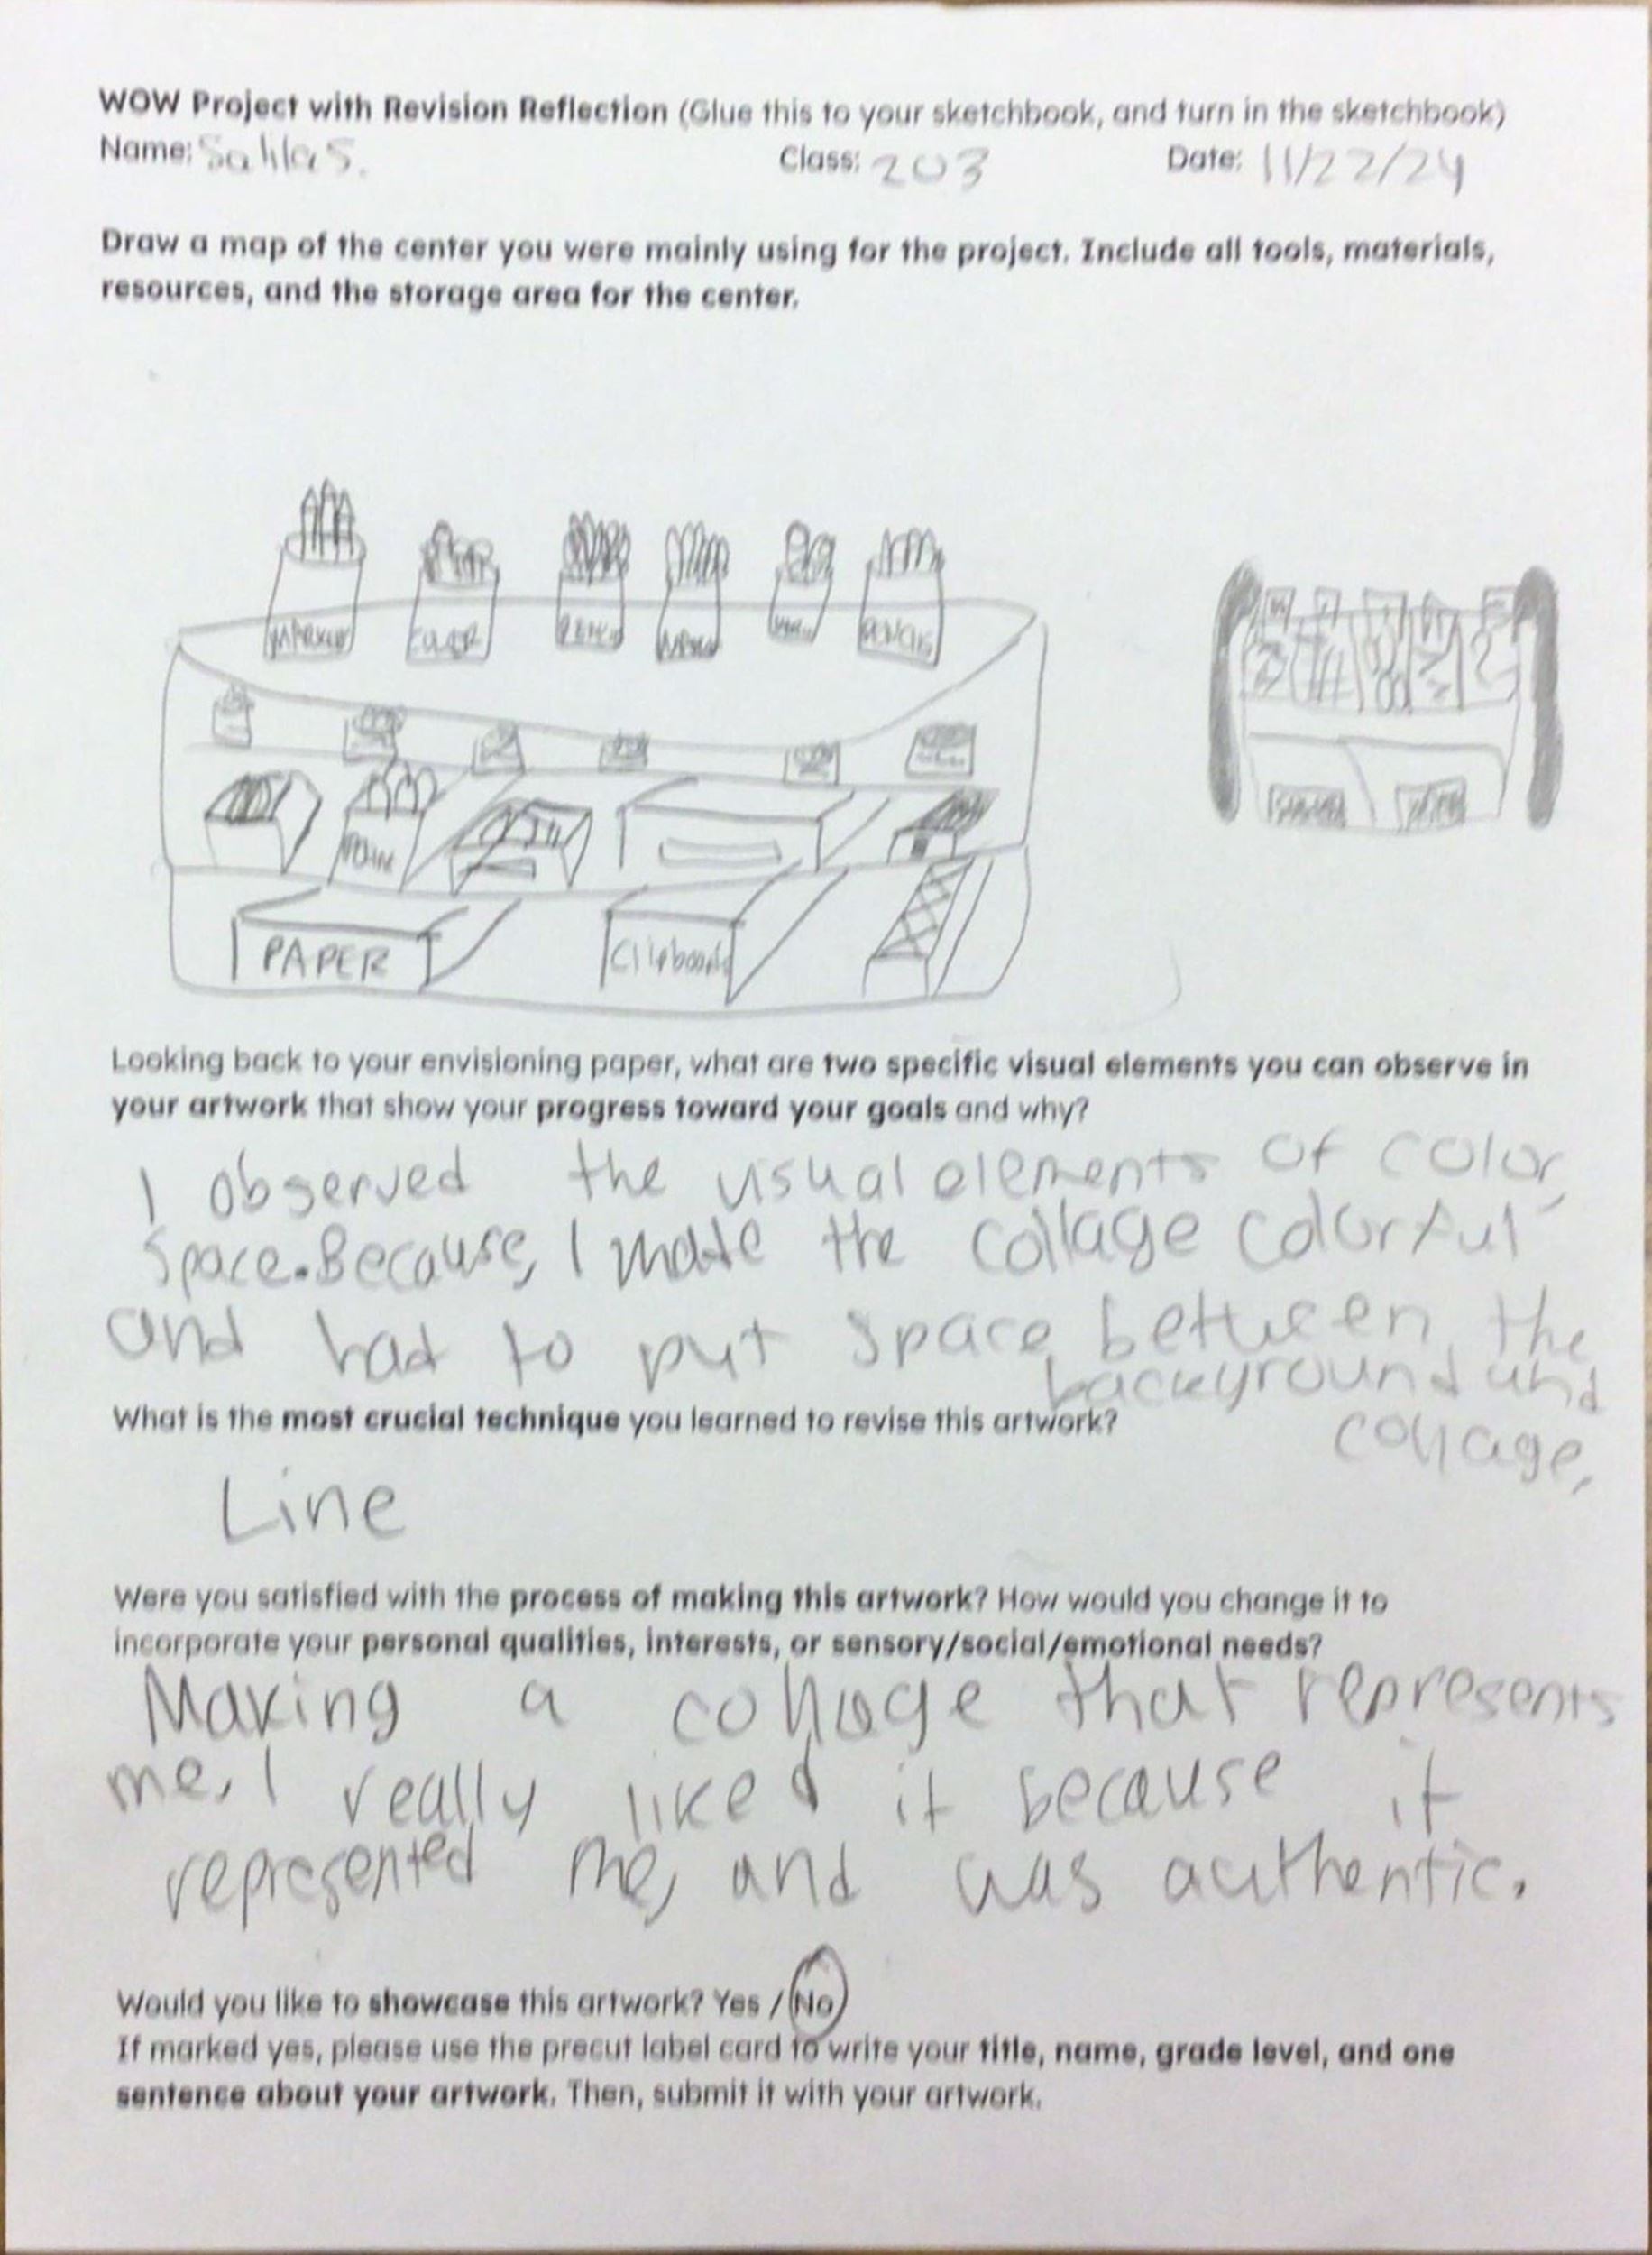 WOW Project with Revision Reflection (Glue this to your sketchbook, and turn in the sketchbook)
Name: Class: 203 Date: 11/22/24
Draw a map of the center you were mainly using for the project. Include all tools, materials,
resources, and the storage area for the center.
PAPER
Looking back to your envisioning paper, what are two specific visual elements you can observe in
your artwork that show your progress toward your goals and why?
I observed the visual elements of color,
space. Because, I made the collage colorful
and had to put space between the
background and
collage,
What is the most crucial technique you learned to revise this artwork?
Line
Were you satisfied with the process of making this artwork? How would you change it to
incorporate your personal qualities, interests, or sensory/social/emotional needs?
Making a collage that represents
me, I really liked it because it
represented me, and was authentic.
Would you like to showcase this artwork? Yes / No
If marked yes, please use the precut label card to write your title, name, grade level, and one
sentence about your artwork. Then, submit it with your artwork.